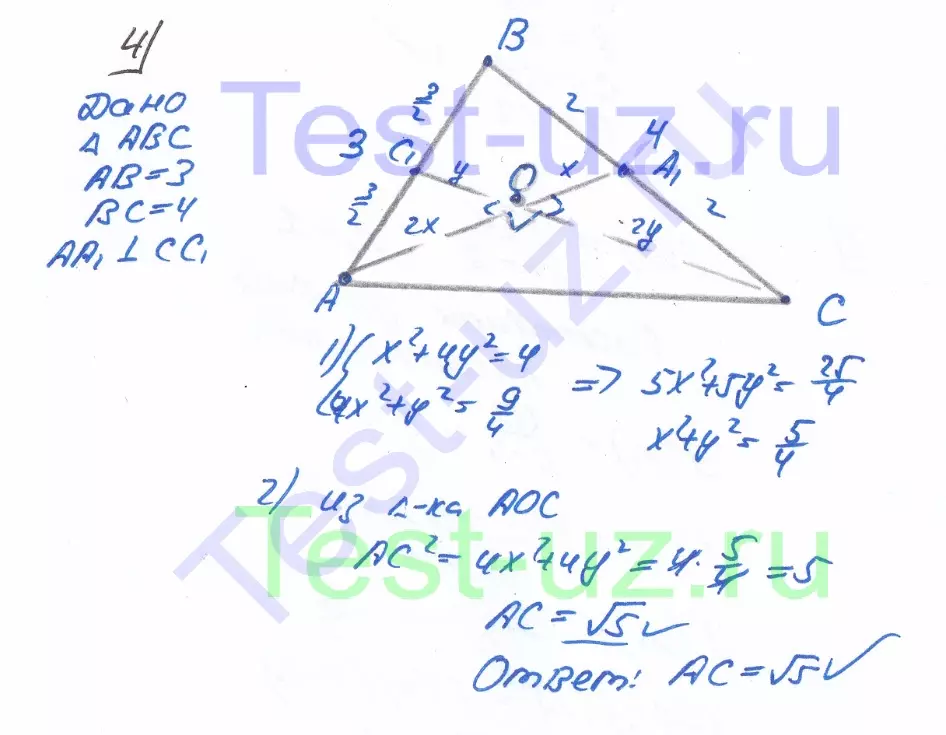 4)
Дано
Δ ABC
AB=3
BC=4
AA₁ ⊥ CC₁
B
3/2
2
4
3
C₁
y
O
x
A₁
3/2
2x
2y
2
A
C
1) { x²+4y²=4
{ 4x²+y²= 9/4
=> 5x²+5y²= 25/4
x²+y²= 5/4
2) из Δ-ка AOC
AC²= 4x²+4y² = 4· 5/4 =5
AC= √5 ✓
Ответ: AC=√5 ✓
Test-uz.ru
Test-uz.ru
Test-uz.ru